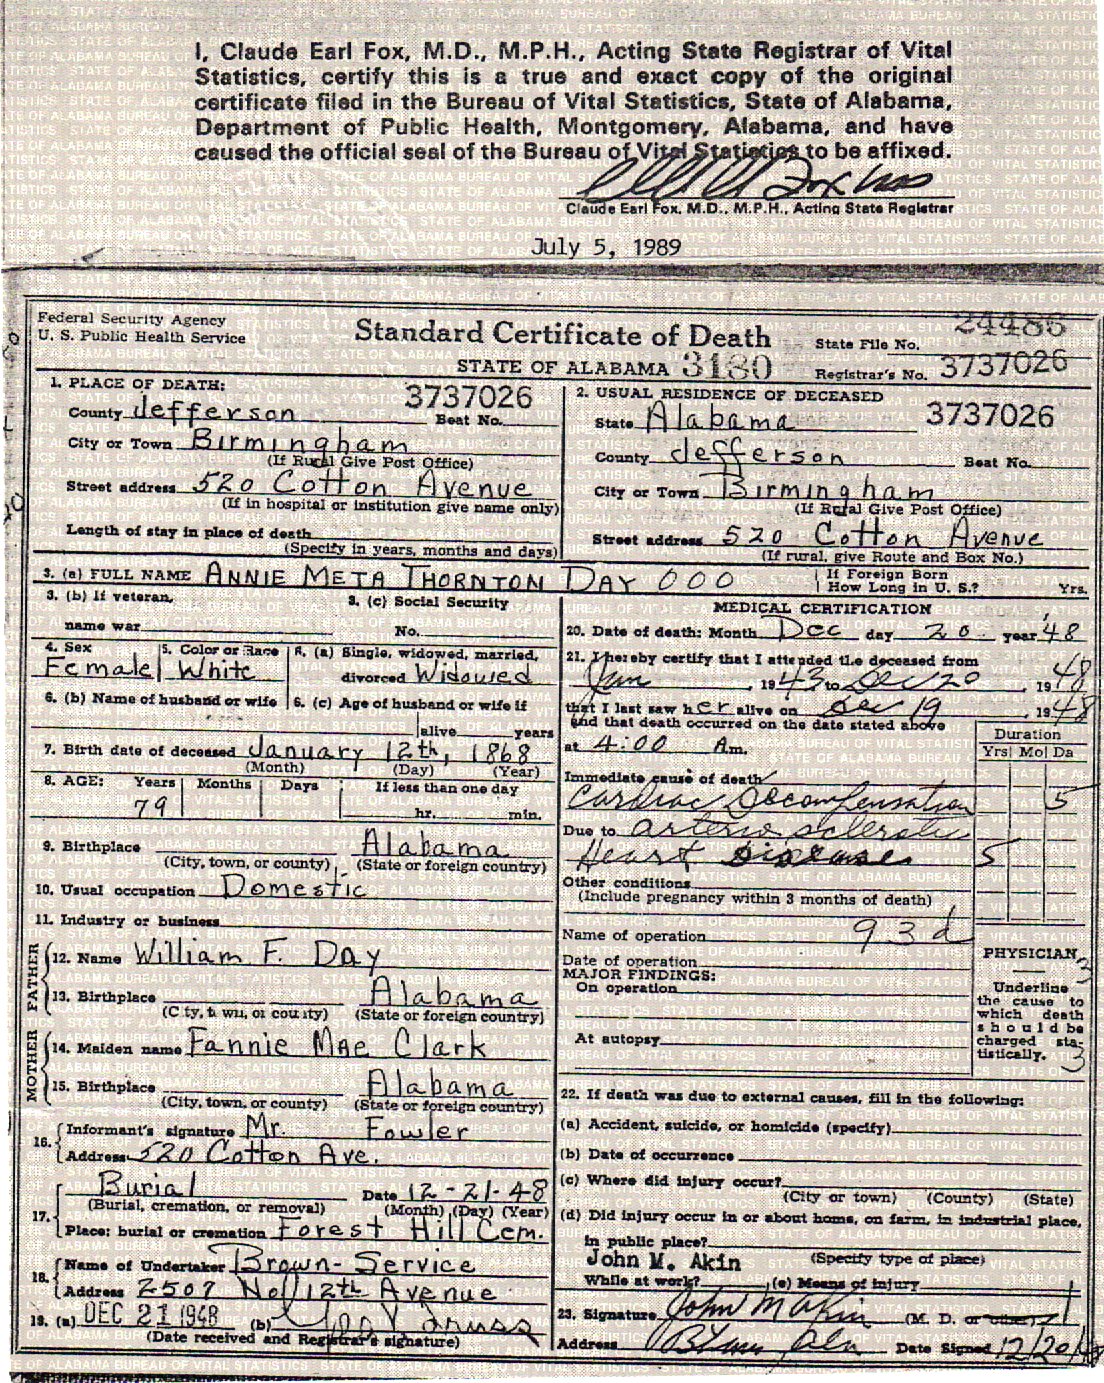 I, Claude Earl Fox, M.D., M.P.H., Acting State Registrar of Vital
Statistics, certify this is a true and exact copy of the original
certificate filed in the Bureau of Vital Statistics, State of Alabama,
Department of Public Health, Montgomery, Alabama, and have
caused the official seal of the Bureau of Vital Statistics to be affixed.
Claude Earl Fox, M.D., M.P.H., Acting State Registrar
July 5, 1989
Federal Security Agency
U. S. Public Health Service
Standard Certificate of Death
STATE OF ALABAMA 3180
24486
State File No.
Registrar's No. 3737026
1. PLACE OF DEATH:
3737026
County Jefferson Beat No.
City or Town Birmingham
(If Rural Give Post Office)
Street address 520 Cotton Avenue
(If in hospital or institution give name only)
Length of stay in place of death
(Specify in years, months and days)
2. USUAL RESIDENCE OF DECEASED
State Alabama 3737026
County Jefferson Beat No.
City or Town Birmingham
(If Rural Give Post Office)
Street address 520 Cotton Avenue
(If rural, give Route and Box No.)
3. (a) FULL NAME ANNIE META THORNTON DAY 000
If Foreign Born
How Long in U. S.? Yrs.
3. (b) If veteran,
name war
3. (c) Social Security
No.
4. Sex
Female
5. Color or Race
White
6. (a) Single, widowed, married,
divorced Widowed
6. (b) Name of husband or wife
6. (c) Age of husband or wife if
alive years
7. Birth date of deceased January 12th, 1868
(Month) (Day) (Year)
8. AGE: Years Months Days If less than one day
79 hr. min.
9. Birthplace Alabama
(City, town, or county) (State or foreign country)
10. Usual occupation Domestic
11. Industry or business
FATHER
12. Name William F. Day
13. Birthplace Alabama
(City, town, or county) (State or foreign country)
MOTHER
14. Maiden name Fannie Mae Clark
15. Birthplace Alabama
(City, town, or county) (State or foreign country)
16. Informant's signature Mr. Fowler
Address 520 Cotton Ave.
17. Burial Date 12-21-48
(Burial, cremation, or removal) (Month) (Day) (Year)
Place: burial or cremation Forest Hill Cem.
18. Name of Undertaker Brown-Service
Address 2507 No 12th Avenue
19. (a) DEC 21 1948 (b)
(Date received and Registrar's signature)
MEDICAL CERTIFICATION
20. Date of death: Month Dec day 20 year '48
21. I hereby certify that I attended the deceased from
Jan, 1943 to Dec 20, 1948
that I last saw her alive on Dec 19 1948
and that death occurred on the date stated above
at 4:00 Am.
Duration
Yrs Mo Da
Immediate cause of death
Cardiac Decompensation 5
Due to arterio sclerotic
Heart disease 5
Other conditions
(Include pregnancy within 3 months of death)
Name of operation 93d
Date of operation
MAJOR FINDINGS:
On operation
At autopsy
PHYSICIAN 3
Underline
the cause to
which death
should be
charged sta-
tistically.
3
22. If death was due to external causes, fill in the following:
(a) Accident, suicide, or homicide (specify)
(b) Date of occurrence
(c) Where did injury occur?
(City or town) (County) (State)
(d) Did injury occur in or about home, on farm, in industrial place,
in public place?
John M. Akin (Specify type of place)
While at work? (e) Means of injury
23. Signature John M Akin (M. D. or other)
Address Date Signed 12/20/48